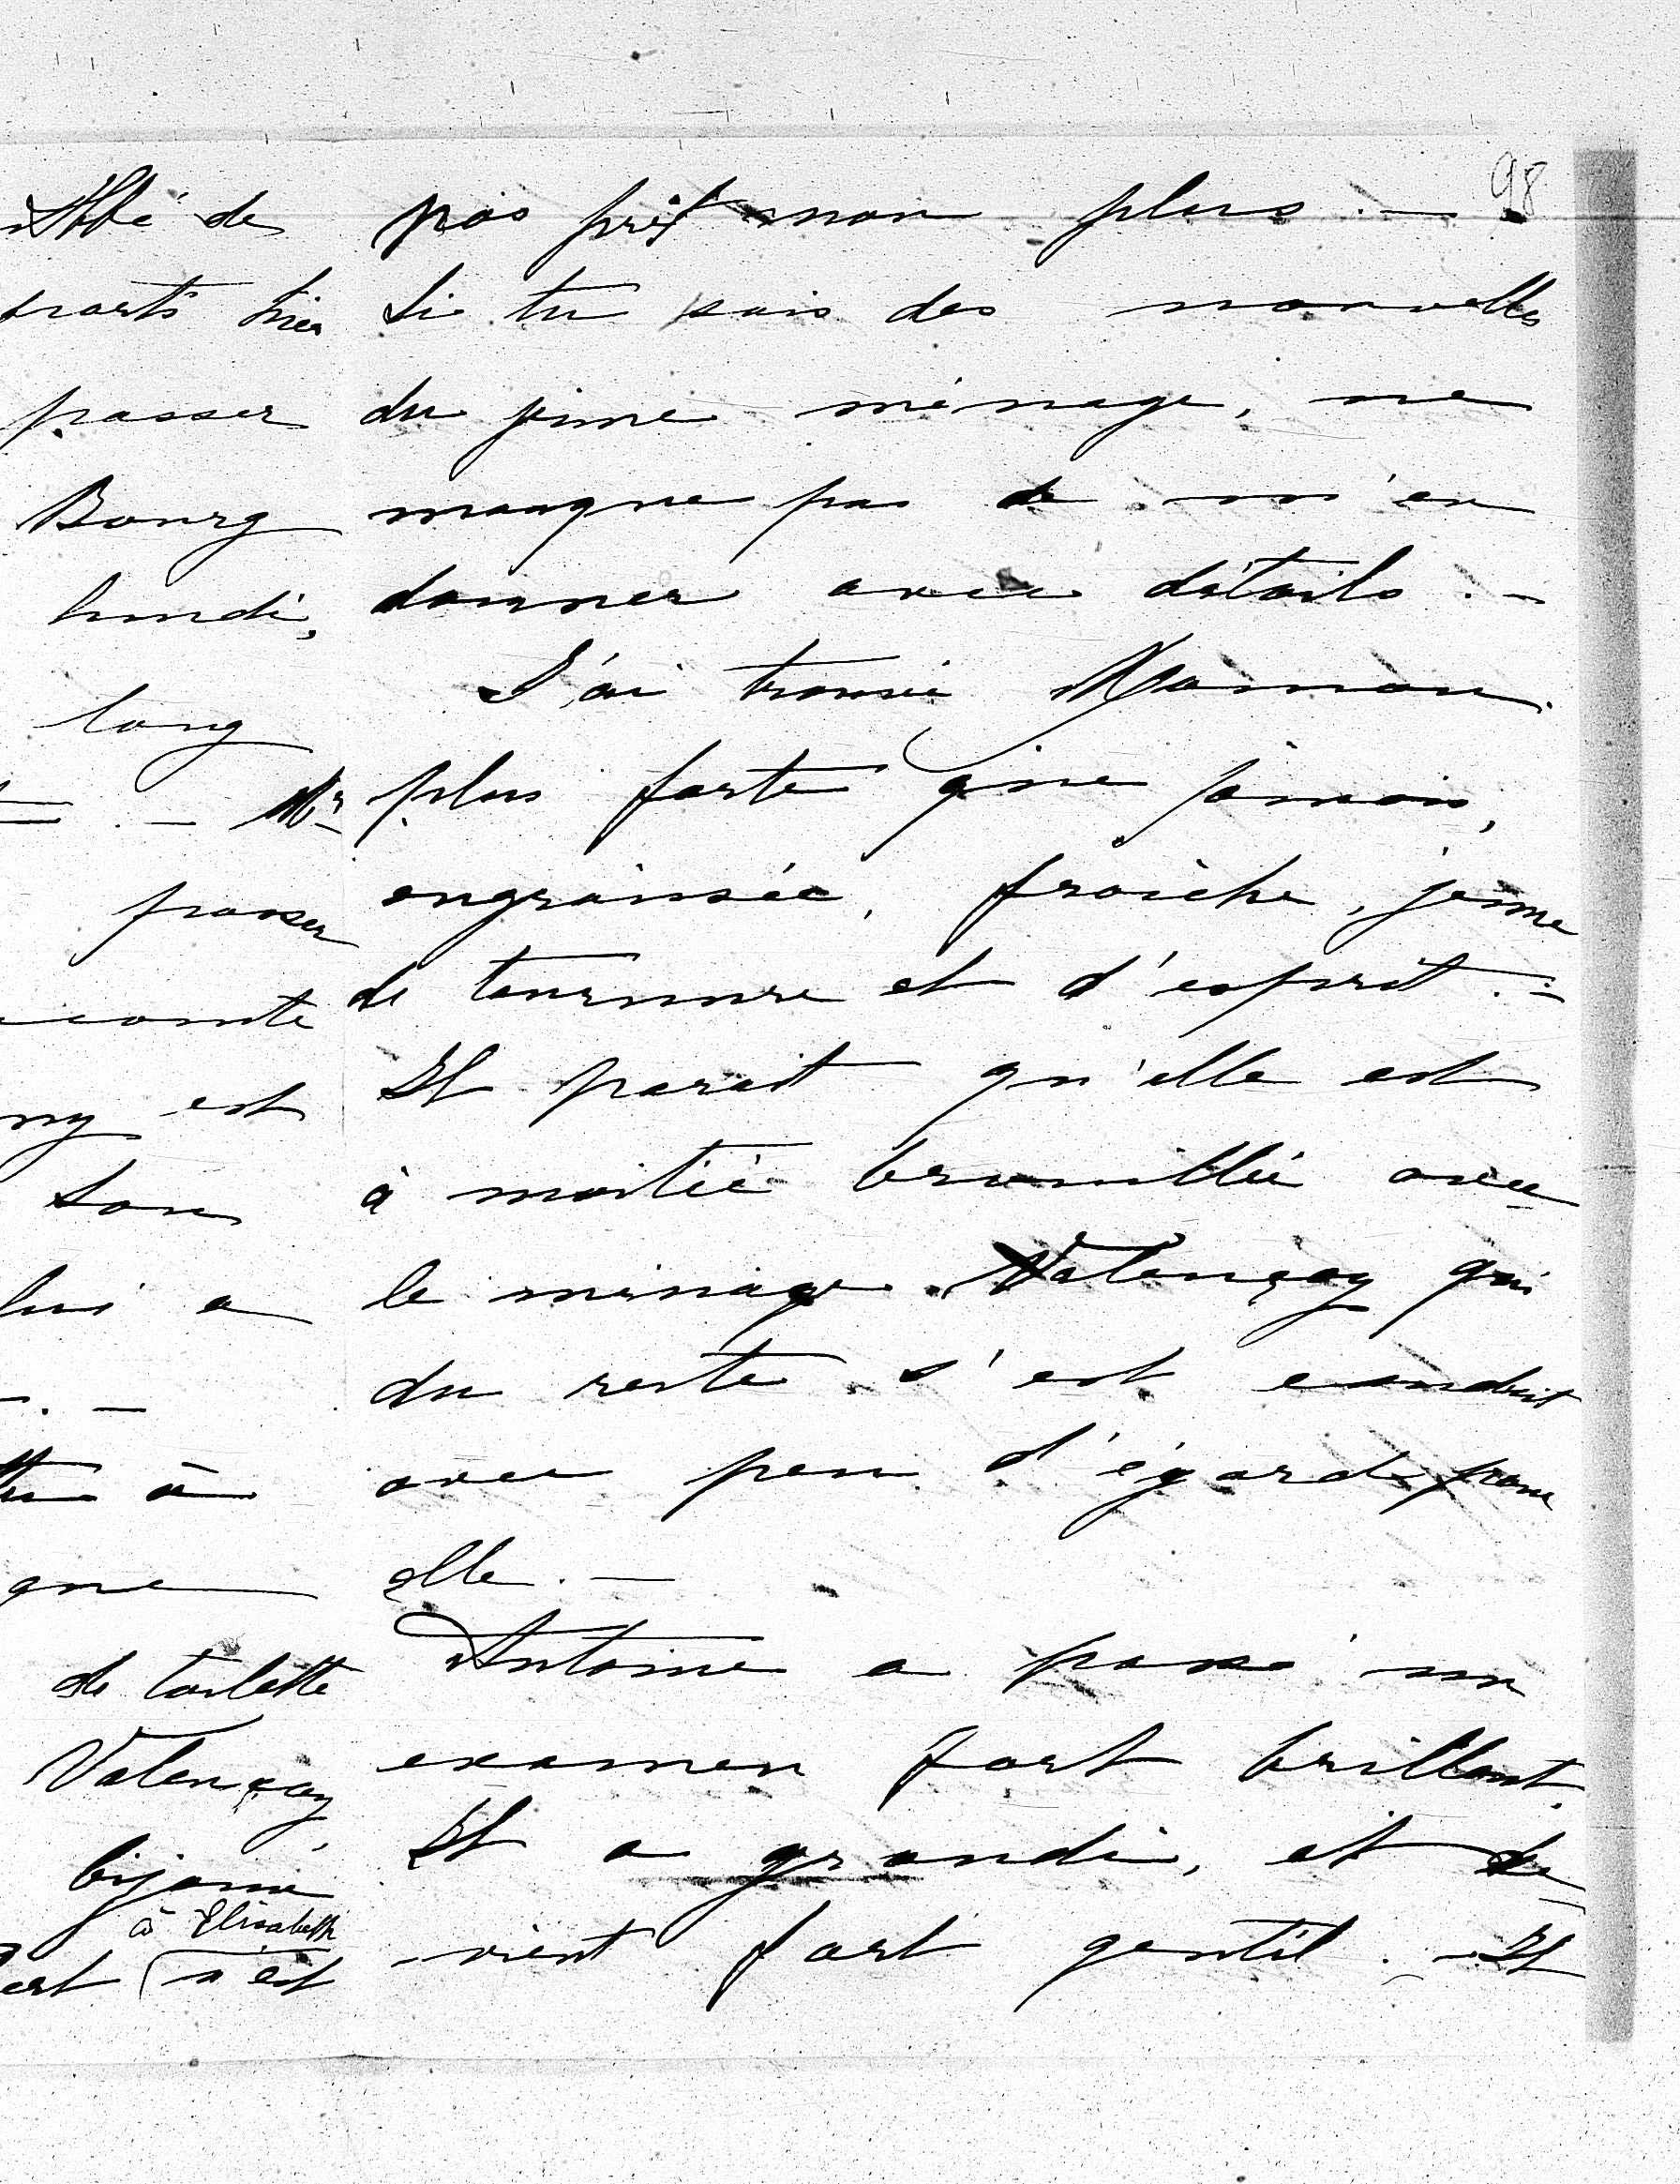 98
Abbé de
partis hier
passer
Bourg
lundi,
long
. — Mr
passer
comte
est
son
lui a
. —
à
que
de toilette
Valençay,
bijoux
à Elisabeth
est n'est
pas prêt non plus. —
Si tu sais des nouvelles
du jeune ménage, ne
manque pas de m'en
donner avec détails. —
J'ai trouvé Maman
plus forte que jamais,
engraissée, fraîche, jeune
de tournure et d'esprit. —
Il parait qu'elle est
à moitié brouillée avec
le ménage Valençay qui
du reste s'est conduit
avec peu d'égards pour
elle. —
Antoine a passé un
examen fort brillant.
Il a grandi, et de
-vient fort gentil. — Il